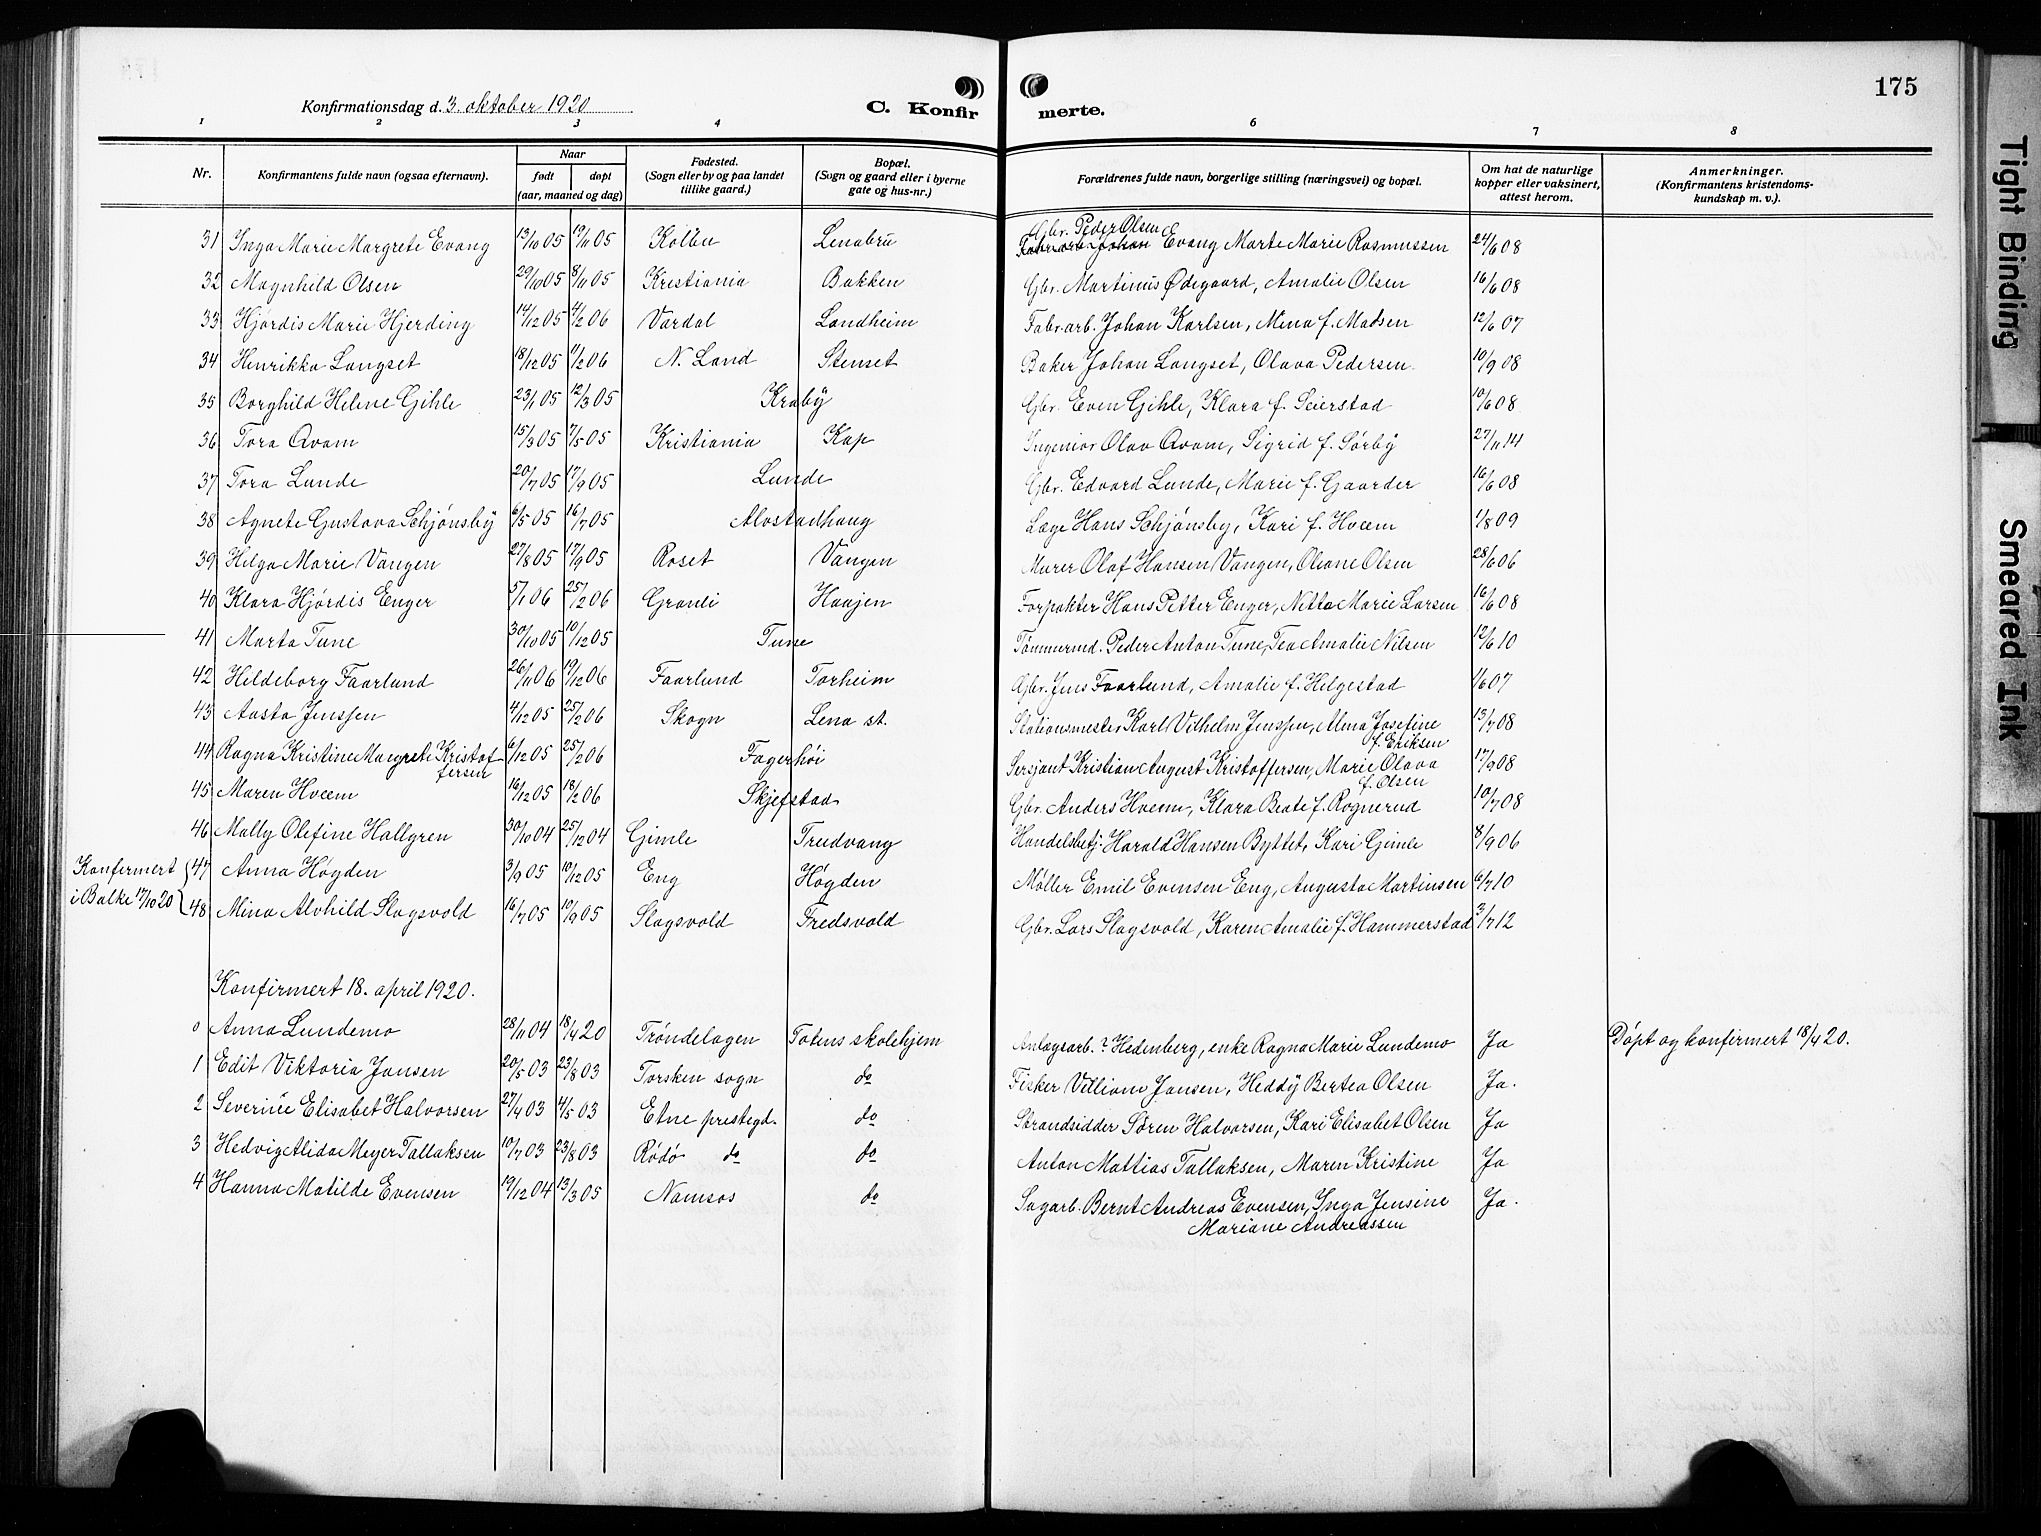 175
Konfirmationsdag d. 3. oktober 1920
C. Konfirmerte.
1 2 3 4 6 7 8
Nr.
Konfirmantens fulde navn (ogsaa efternavn).
Naar
født døpt
(aar, maaned og dag)
Fødested.
(Sogn eller by og paa landet
tillike gaard.)
Bopæl.
(Sogn og gaard eller i byerne
gate og hus-nr.)
Forældrenes fulde navn, borgerlige stilling (næringsvei) og bopæl.
Om hat de naturlige
kopper eller vaksinert,
attest herom.
Anmerkninger.
(Konfirmantens kristendoms-
kundskap m. v.).
Gbr. Peder Olsen
31 Inga Marie Margrete Evang 13/10 05 19/11 05 Kolbu Lenabru Evang Marte Marie Rasmussen 24/6 08
32 Magnhild Olsen 29/10 05 8/11 05 Kristiania Bakken Gbr. Martinus Ødegaard, Amalie Olsen 16/6 08
33 Hjørdis Marie Hjerding 14/12 05 4/2 06 Vardal Landheim Fabr.arb. Johan Karlsen, Mina f. Madsen 12/6 07
34 Henrikka Langset 18/12 05 11/2 06 N. Land Stenset Baker Johan Langset, Olava Pedersen 10/9 08
35 Borghild Helene Gihle 23/1 05 12/3 05 Kraby Gbr. Even Gihle, Klara f. Seierstad 10/6 08
36 Tora Qvam 15/3 05 7/5 05 Kristiania Kap Ingeniør Olav Qvam, Sigrid f. Sørby 27/11 14
37 Tora Lunde 20/7 05 17/9 05 Lunde Gbr. Edvard Lunde, Marie f. Gaarder 16/6 08
38 Agnete Gustava Schjønsby 6/5 05 16/7 05 Alvstadhaug Læge Hans Schjønsby, Kari f. Hveem 1/8 09
39 Helga Marie Vangen 27/8 05 17/9 05 Roset Vangen Murer Olaf Hansen Vangen, Oliane Olsen 28/6 06
40 Klara Hjørdis Enger 5/1 06 25/2 06 Granli Haajen Forpakter Hans Petter Enger, Netta Marie Larsen 16/6 08
41 Marta Tune 30/10 05 10/12 05 Tune Tømmermd. Peder Anton Tune, Tea Amalie Nilsen 12/6 10
42 Hildeborg Faarlund 26/11 06 19/12 06 Faarlund Torheim Gbr. Jens Faarlund, Amalie f. Helgestad 1/6 07
43 Aasta Jenssen 4/12 05 25/2 06 Skogn Lena st. Stationsmester Karl Vilhelm Jenssen, Alma Josefine 13/7 08
f. Eriksen
44 Ragna Kristine Margrete Kristof- 6/12 05 25/2 06 Fagerhøi Sersjant Kristian August Kristoffersen, Marie Olava 17/9 08
fersen
f. Olsen
45 Maren Hveem 16/12 05 18/2 06 Skjefstad Gbr. Anders Hveem, Klara Beate f. Rognerud 10/7 08
46 Mally Olefine Hallgren 30/10 04 25/12 04 Gimle Tredvang Handelsbetj. Harald Hansen Byttet, Kari Gimle 8/9 06
Konfermert 47 Anna Høgden 3/9 05 10/12 05 Eng Høgden Møller Emil Evensen Eng, Augusta Martinsen 6/7 10
i Balke 17/10 20 48 Mina Alvhild Slagsvold 16/7 05 10/9 05 Slagsvold Fredsvold Gbr. Lars Slagsvold, Karen Amalie f. Hammerstad 3/7 12
Konfirmert 18. april 1920.
0 Anna Lundemo 28/11 04 18/4 20 Trøndelagen Totens skolehjem Anlægsarb. ? Hedenberg, enke Ragna Marie Lundemo Ja Døpt og konfirmert 18/4 20.
1 Edit Viktoria Jansen 20/5 03 23/8 03 Torsken sogn do Fisker Villiam Jansen, Heddy Bertea Olsen Ja.
2 Severine Elisabet Halvorsen 27/4 03 4/5 03 Etne prestegd. do Strandsidder Søren Halvorsen, Kari Elisabet Olsen Ja
3 Hedvig Alida Meyer Tallaksen 10/7 03 23/8 03 Rødø do do Anton Mattias Tallaksen, Maren Kristine Ja
4 Hanna Matilde Evensen 19/12 04 13/3 05 Namsos do Sagarb. Bernt Andreas Evensen, Inga Jensine Ja.
Mariane Andreassen
Tight Binding
Smeared Ink